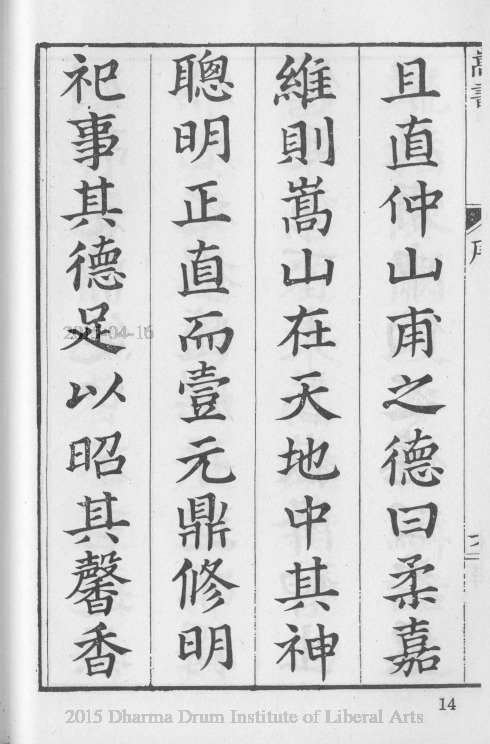 且直仲山甫之德曰柔嘉
維則嵩山在天地中其神
聰明正直而壹元鼎修明
祀事其德足以昭其馨香
14
2015 Dharma Drum Institute of Liberal Arts